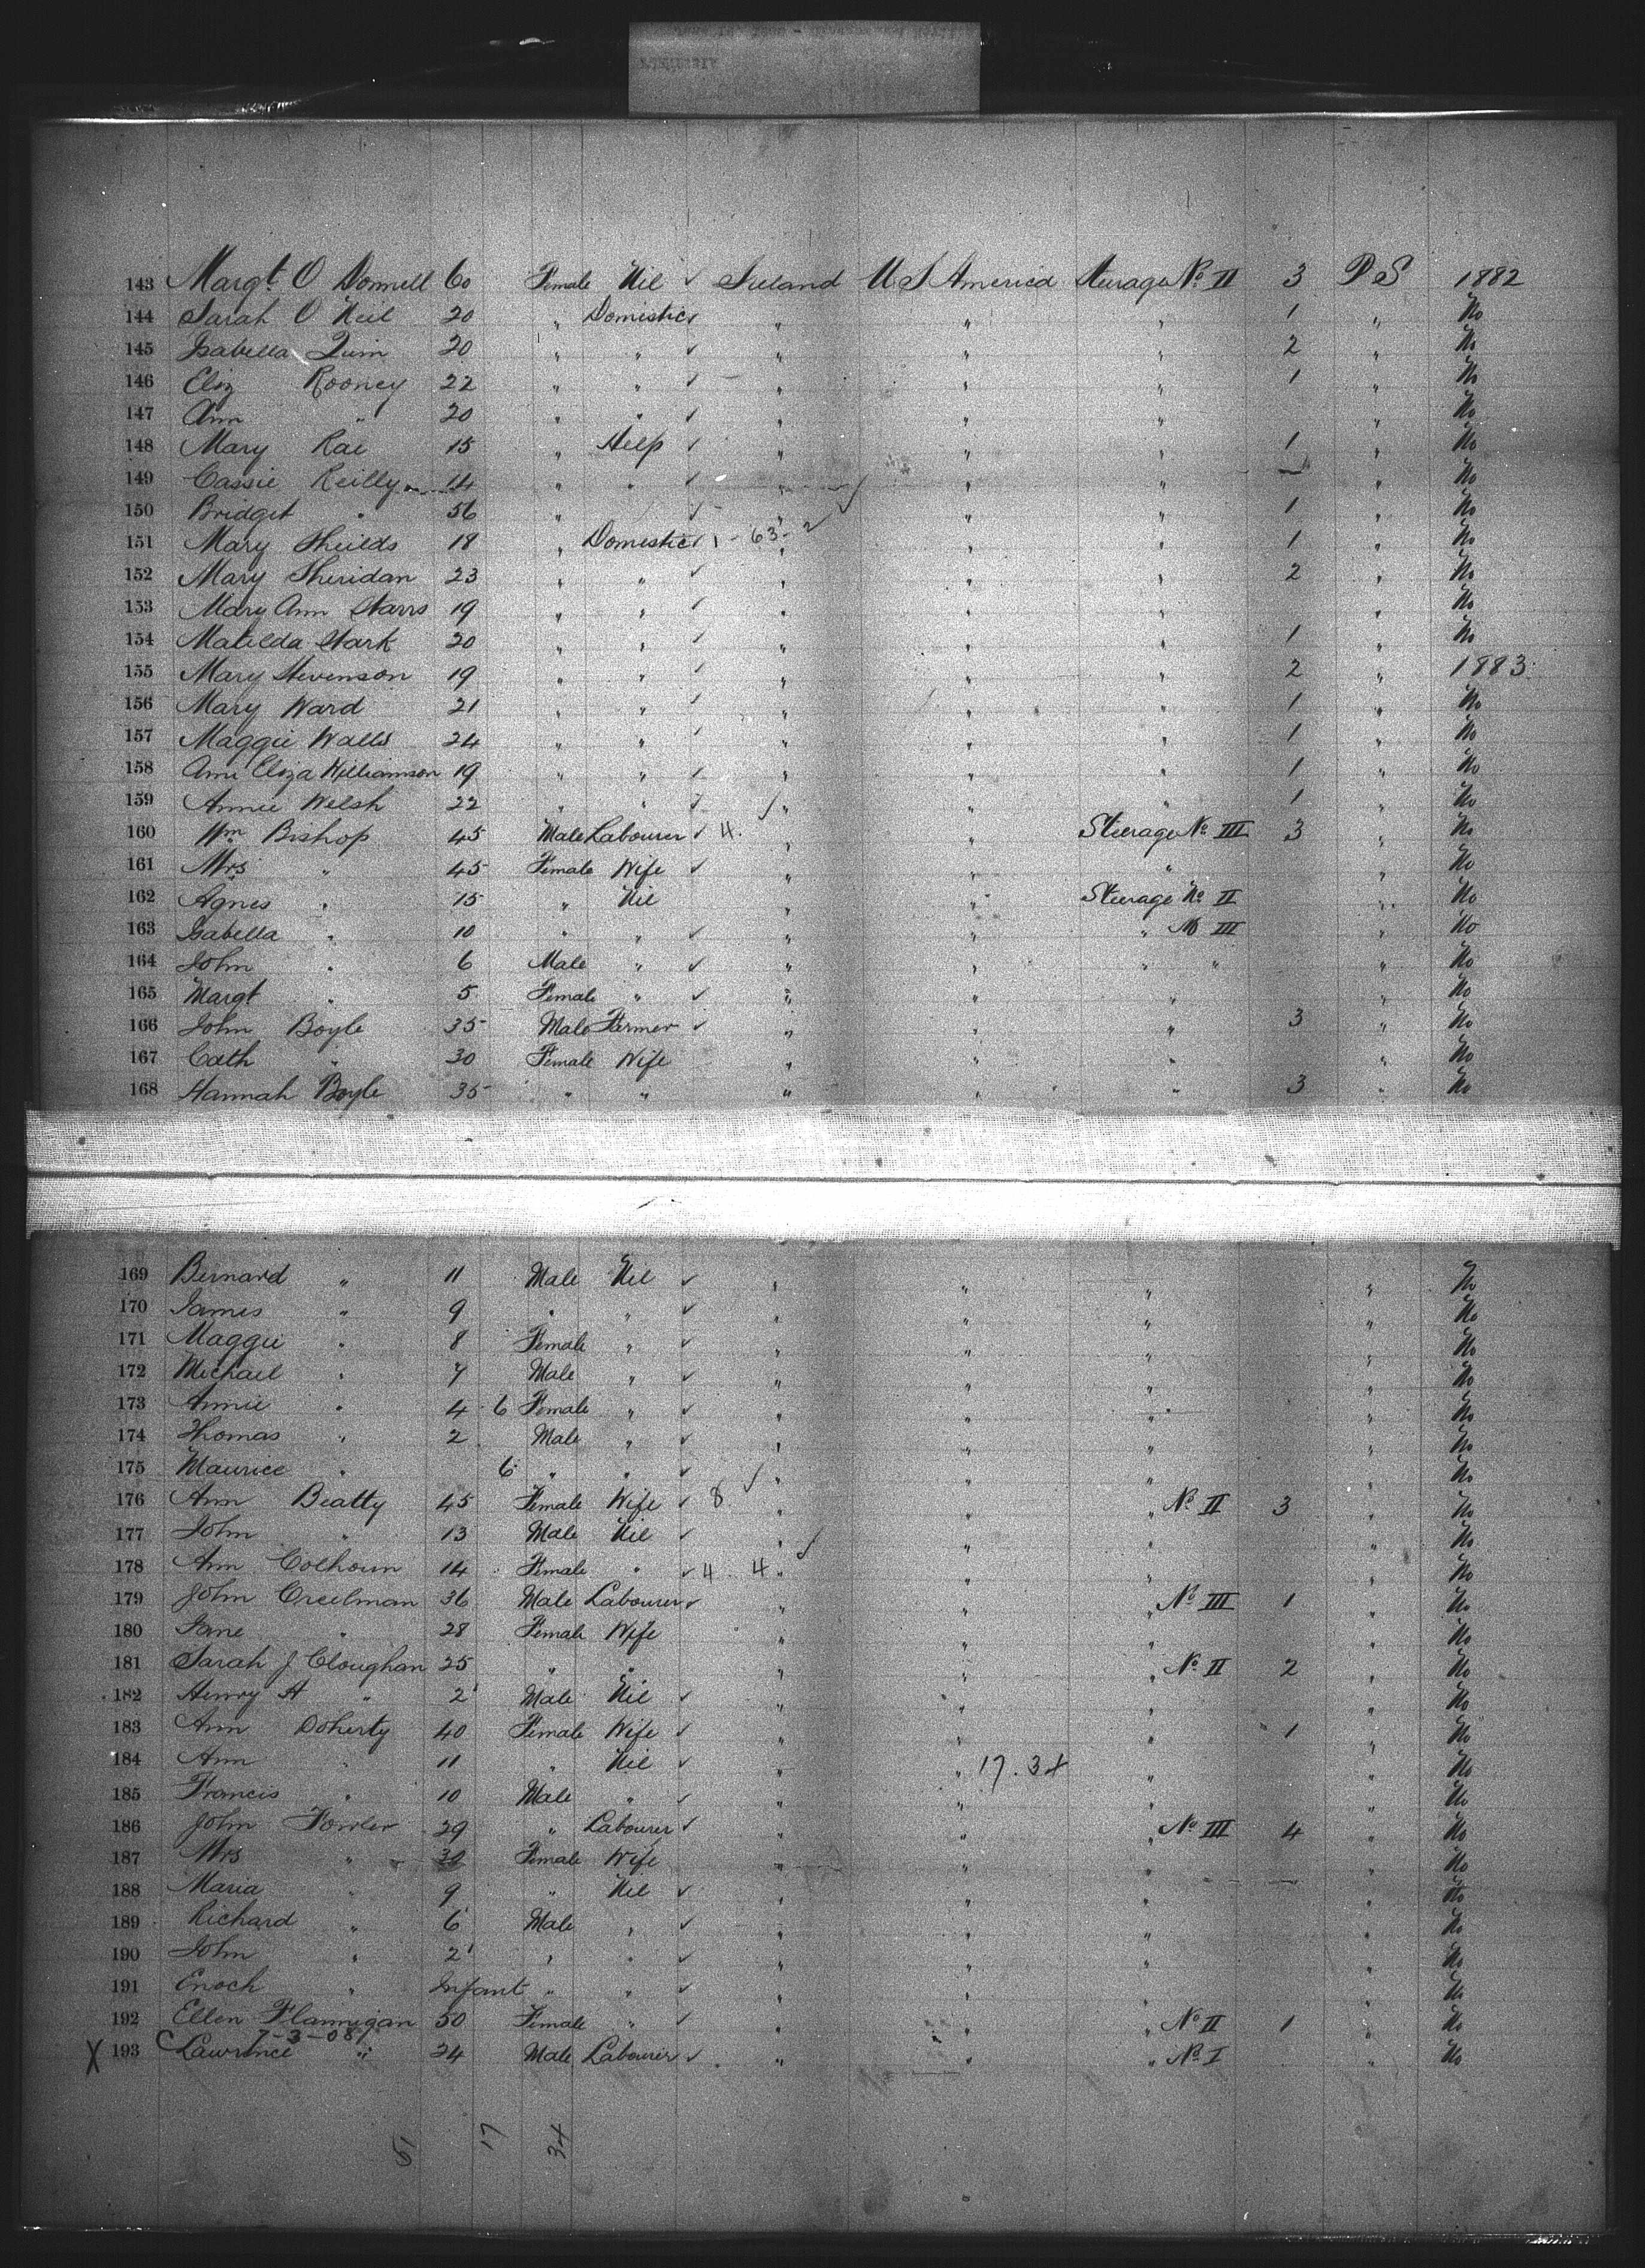 143 Margt O Donnell 60 Female Nil ✓ Ireland U S America Steerage No II 3 P S 1882
144 Sarah O Neil 20 " Domestic ✓ " " " 1 " No
145 Isabella Quin 20 " " ✓ " " " 2 " No
146 Eliz Rooney 22 " " ✓ " " " 1 " No
147 Ann " 20 " " ✓ " " " " No
148 Mary Rae 15 " Help ✓ " " " 1 " No
149 Cassie Reilly 14 " " ✓ " " " — " No
150 Bridget " 56 " ✓ " " " 1 " No
151 Mary Sheilds 18 " Domestic ✓ 1 - 63 - 2 " " " 1 " No
152 Mary Sheridan 23 " " ✓ " " " 2 " No
153 Mary Ann Starrs 19 " " ✓ " " " " No
154 Matilda Stark 20 " " ✓ " " " 1 " No
155 Mary Stevenson 19 " " ✓ " " " 2 " 1883
156 Mary Ward 21 " " ✓ " " " 1 " No
157 Maggie Walls 24 " " ✓ " " " 1 " No
158 Ann Eliza Williamson 19 " " ✓ " " " 1 " No
159 Annie Welsh 22 " " ✓ " " " 1 " No
160 Wm Bishop 45 Male Labourer ✓ 4. " " Steerage No III 3 " No
161 Mrs " 45 Female Wife ✓ " " " " No
162 Agnes " 15 " Nil " " Steerage No II " No
163 Isabella " 10 " " ✓ " " " No III " No
164 John " 6 Male " ✓ " " " " " No
165 Margt " 5 Female " ✓ " " " " No
166 John Boyle 35 Male Farmer ✓ " " " 3 " No
167 Cath " 30 Female Wife " " " " No
168 Hannah Boyle 35 " " " " " 3 " No
169 Bernard " 11 Male Nil ✓ " " " " No
170 James " 9 " " ✓ " " " " No
171 Maggie " 8 Female " ✓ " " " " No
172 Michael " 7 Male " ✓ " " " " No
173 Annie " 4 6 Female " ✓ " " " " No
174 Thomas " 2 Male " ✓ " " " " No
175 Maurice " 6 " " ✓ " " " " No
176 Ann Beatty 45 Female Wife ✓ 8 " " " No II 3 " No
177 John " 13 Male Nil ✓ " " " " No
178 Ann Colhoun 14 Female " ✓ 4 4 " " " " No
179 John Creelman 36 Male Labourer ✓ " " " No III 1 " No
180 Jane " 28 Female Wife " " " " No
181 Sarah J Cloughan 25 " " " " " No II 2 " No
182 Henry A " 2 Male Nil ✓ " " " " No
183 Ann Doherty 40 Female Wife ✓ " " " 1 " No
184 Ann " 11 " Nil ✓ " " 17.34 " " No
185 Francis " 10 Male " ✓ " " " " No
186 John Fowler 29 " Labourer ✓ " " " No III 4 " No
187 Mrs " 30 Female Wife " " " " No
188 Maria " 9 " Nil ✓ " " " " No
189 Richard " 6 Male " ✓ " " " " No
190 John " 2 " " ✓ " " " " No
191 Enoch " Infant " " ✓ " " " " No
192 Ellen Flannigan 50 Female " ✓ " " " No II 1 " No
C 7-3-08
X 193 Lawrence " 24 Male Labourer ✓ " " " No I " No
51 17 34